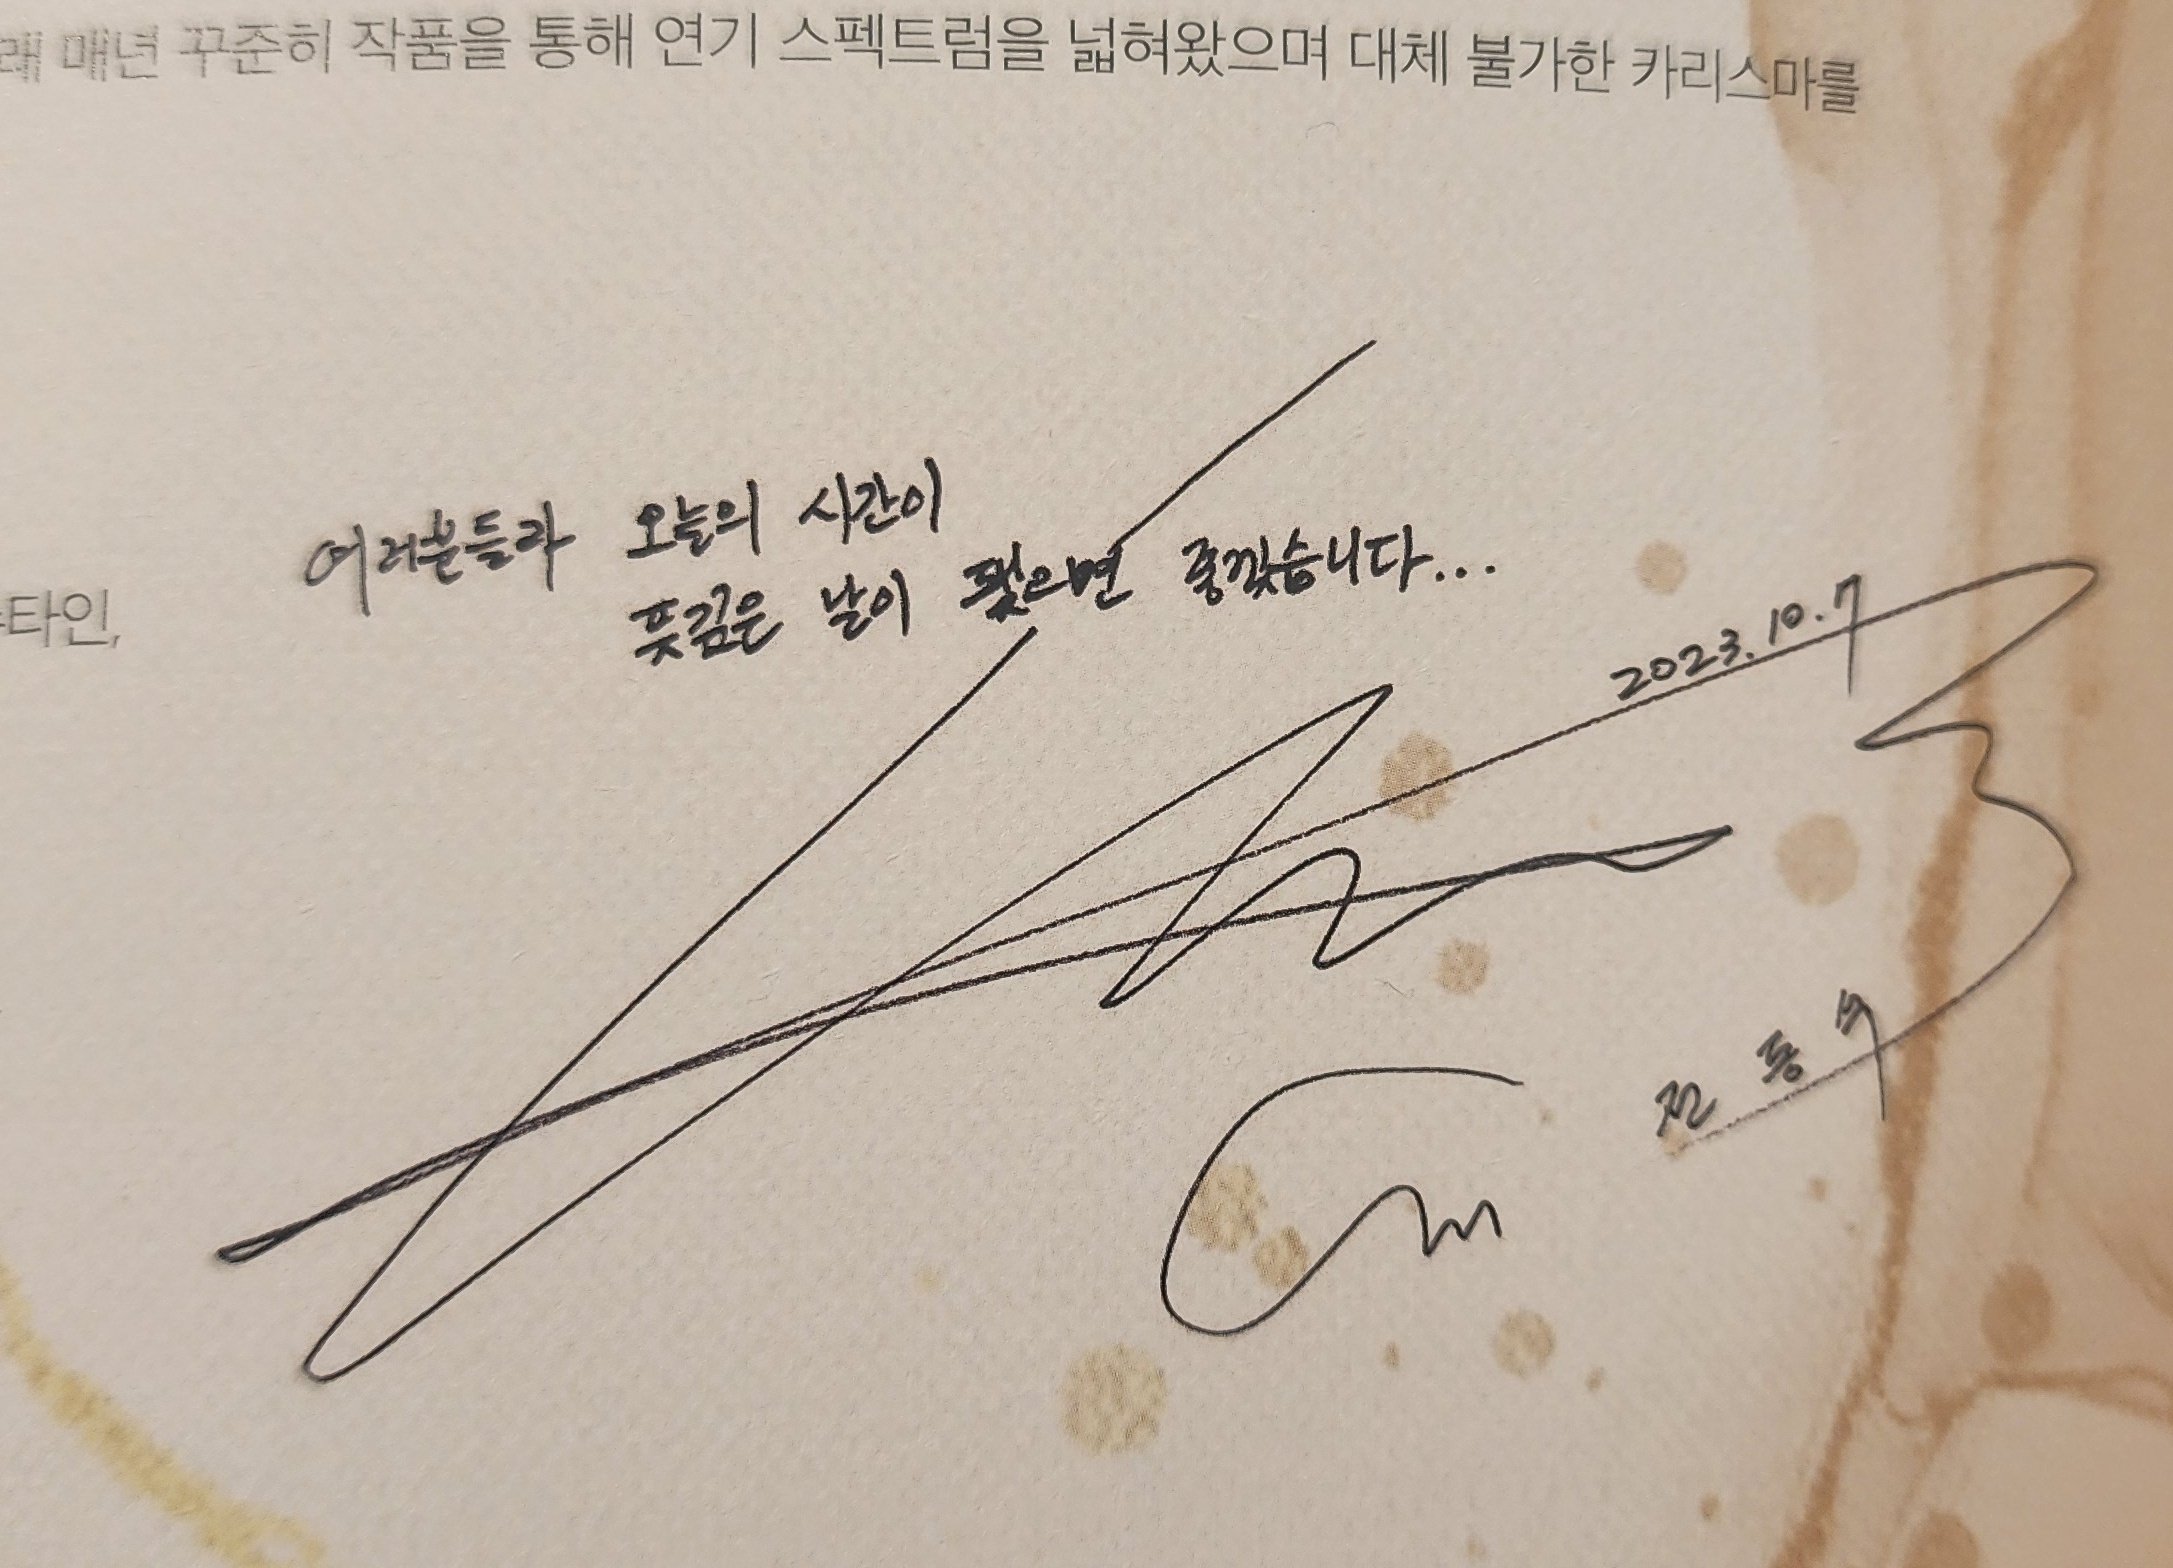 래 매년 꾸준히 작품을 통해 연기 스펙트럼을 넓혀왔으며 대체 불가한 카리스마를
여러분들과 오늘의 시간이
뜻깊은 날이 됐으면 좋겠습니다...
타인,
2023.10.7
전동석